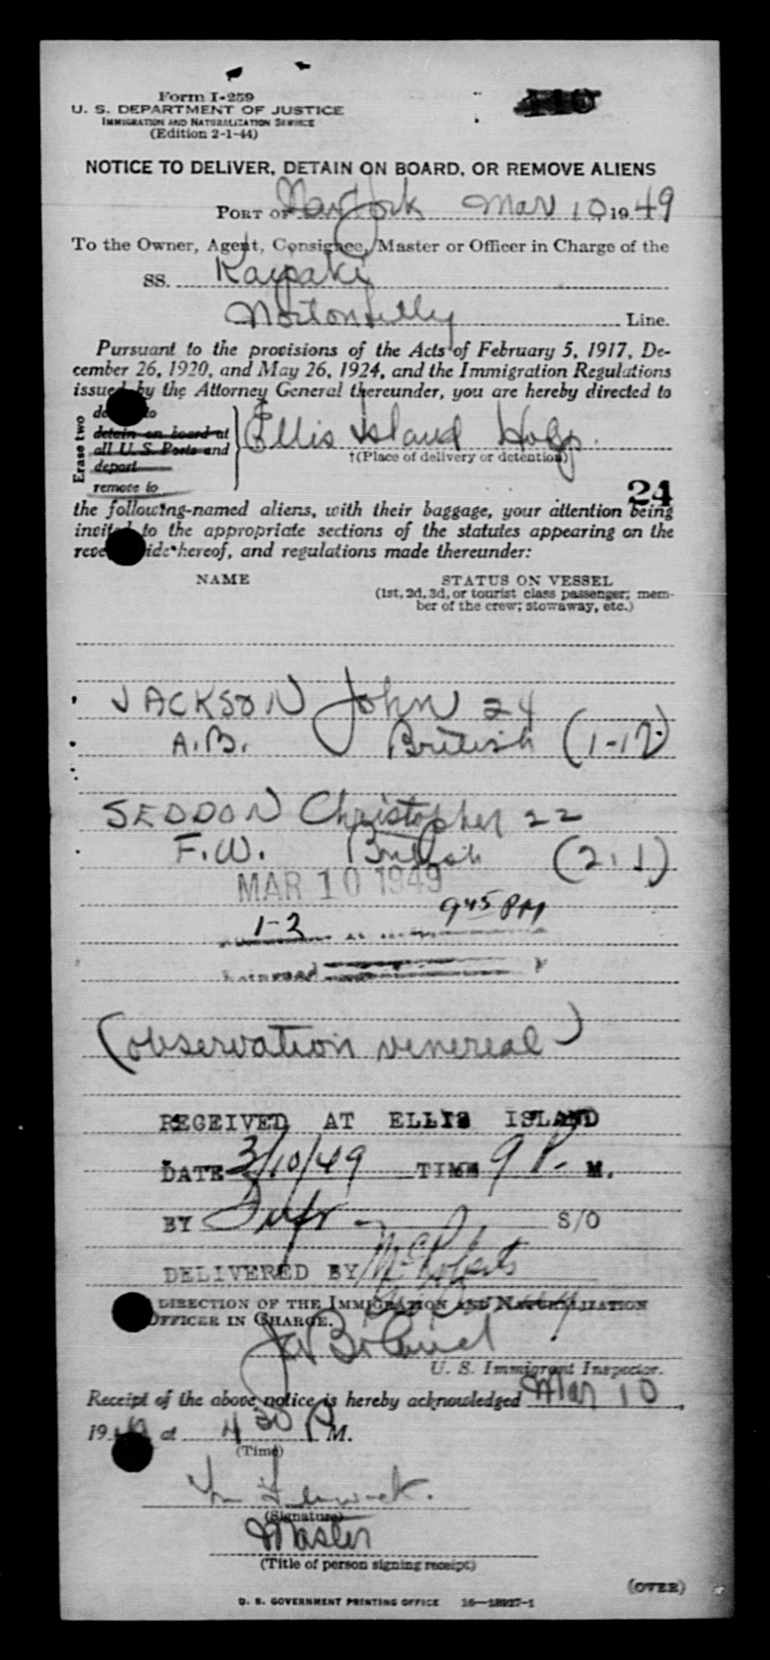 Form I-259
U. S. DEPARTMENT OF JUSTICE
IMMIGRATION AND NATURALIZATION SERVICE
(Edition 2-1-44)
NOTICE TO DELIVER, DETAIN ON BOARD, OR REMOVE ALIENS
PORT OF New York Mar 10, 1949
To the Owner, Agent, Consignee, Master or Officer in Charge of the
SS. Kaipaki
Norton Lilly Line.
Pursuant to the provisions of the Acts of February 5, 1917, De-
cember 26, 1920, and May 26, 1924, and the Immigration Regulations
issued by the Attorney General thereunder, you are hereby directed to
Erase two
to
detain on board at
all U. S. Ports and
deport
remove to
Ellis Island Hosp.
†(Place of delivery or detention)
24
the following-named aliens, with their baggage, your attention being
invited to the appropriate sections of the statutes appearing on the
hereof, and regulations made thereunder:
NAME STATUS ON VESSEL
(1st, 2d, 3d, or tourist class passenger; mem-
ber of the crew; stowaway, etc.)
JACKSON John 24
A.B. British (1-12)
SEDDON Christopher 22
F.W. British (2.1)
MAR 10 1949
945 PM
1-2
(observation venereal)
RECEIVED AT ELLIS ISLAND
DATE 3/10/49 TIME 9 P. M.
BY S/O
DELIVERED BY McRoberts
DIRECTION OF THE IMMIGRATION AND NATURALIZATION
OFFICER IN CHARGE.
U. S. Immigrant Inspector.
Receipt of the above notice is hereby acknowledged Mar 10,
19 at 4 30 P M.
(Time)
(Signature)
Master
(Title of person signing receipt)
(OVER)
U. S. GOVERNMENT PRINTING OFFICE 16—18927-1